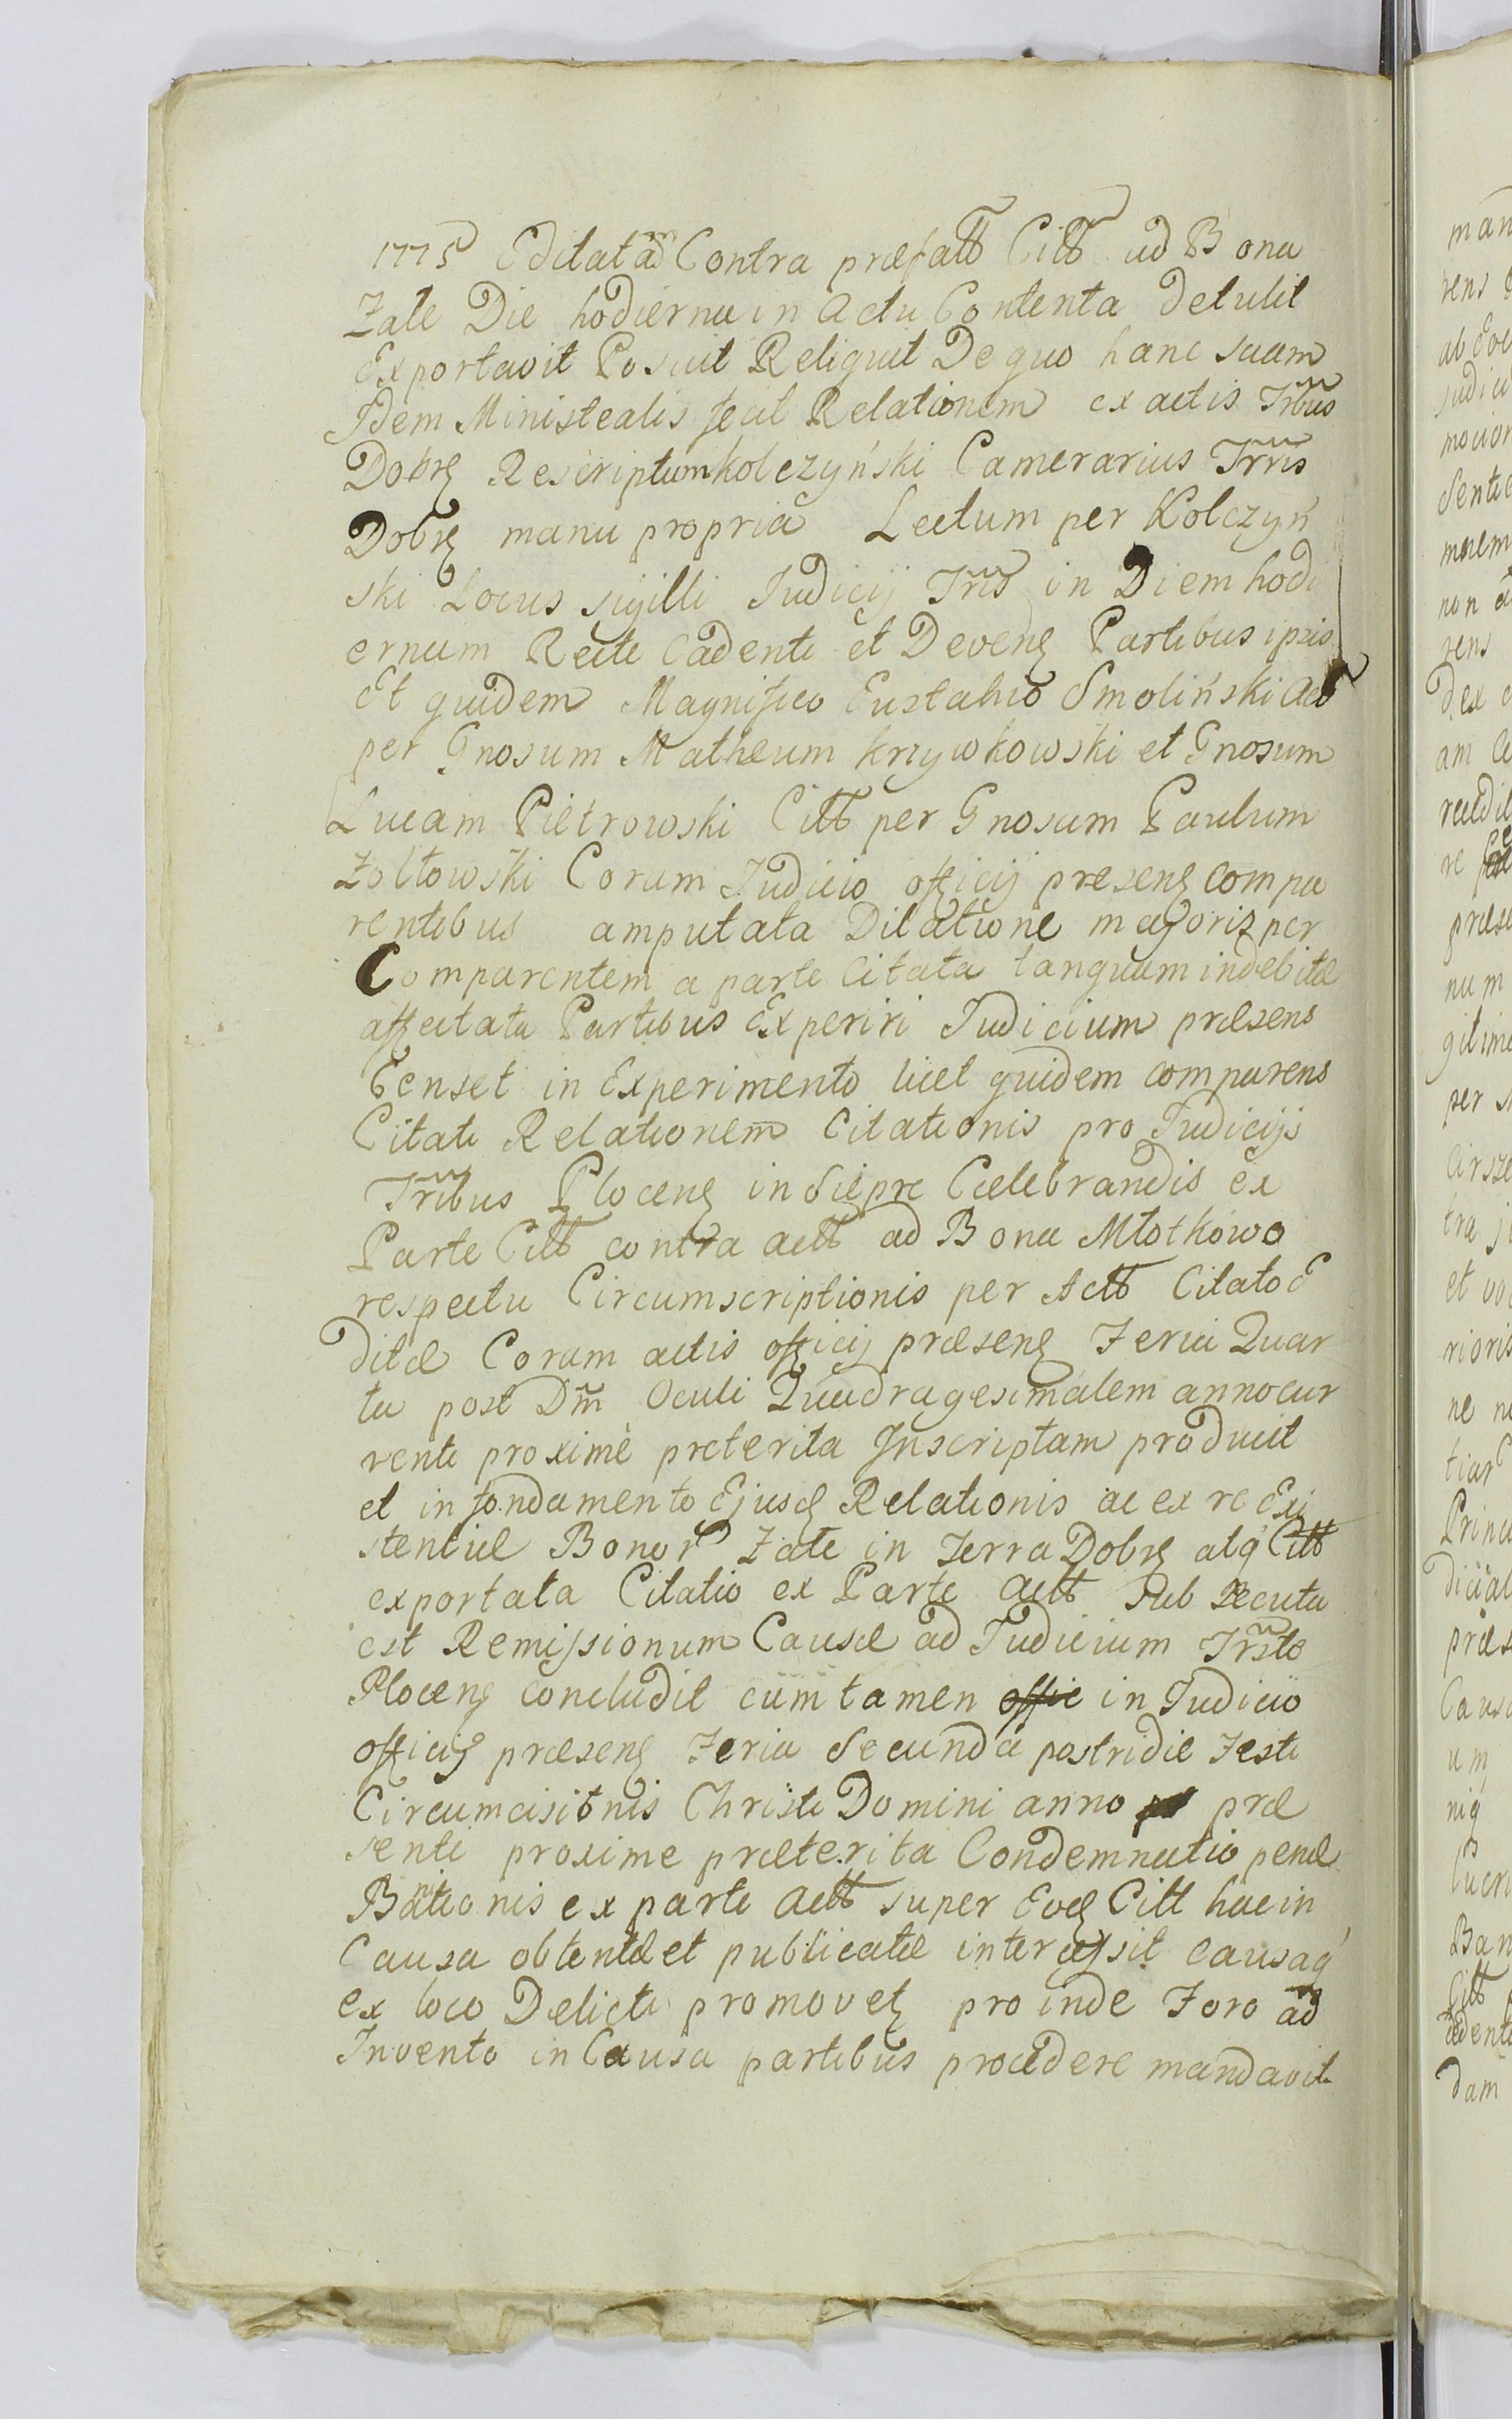 1775 Editatam Contra præfatt Citt ad Bona
Zale Die hodierna in Actu Contenta Detulit
Exportavit Posuit Reliquit De quo hanc suam
Idem Ministealis fecit Relationem ex actis Trbus
Dobrȝ Rescriptum Kolczyński Camerarius Trris
Dobrȝ manu propria Lectum per Kolczyń
ski Locus sigilli Judicij Tris in Diem hodi
ernum Recte Cadenti et Devenȝ Partibus ipsis
Et quidem Magnifico Eustahio Smoliński Act
per Gnosum Matheum Krzywkowski et Gnosum
Lucam Pietrowski Citt per Gnosum Paulum
Żółtowski Coram Judicio officij presenȝ Compa
rentibus amputata Dilatione majoris per
Comparentem a parte Citata tanquam indebitæ
affectata Partibus Experiri Judicium præsens
Censet in Experimento licet quidem comparens
Citati Relationem Citationis pro Judicijs
Tribus Plocenȝ in Siepre Cælebrandis ex
Parte Citt contra actt ad Bona Młotkowo
respectu Circumscriptionis per Actt Citato E
ditæ Coram actis officij præsenȝ Feria Quar
ta post Dm Oculi Quadragesimalem anno cur
renti proximè preterita Inscriptam producit
et in fondamento Ejusȝ Relationis ac ex re Exi
stentiæ Bonor Zale in Terra Dobrȝ atq Citt
exportata Citatio ex Parte actt Sub Secuta
est Remissionum Causæ ad Judicium Trste
Plocenȝ concludit cum tamen offic in Judicio
officij præsenȝ Feria Secunda postridie Festi
Circumcisitnis Christi Domini anno præ
senti proxime præterita Condemnatio penæ
Bationis ex parte Actt super Eoȝ Citt hac in
Causa obtentæ et publicatæ intercessit causaq
ex loco Delicti promovetȝ pro inde Foro ad
Invento in Causa partibus procedere mandavit